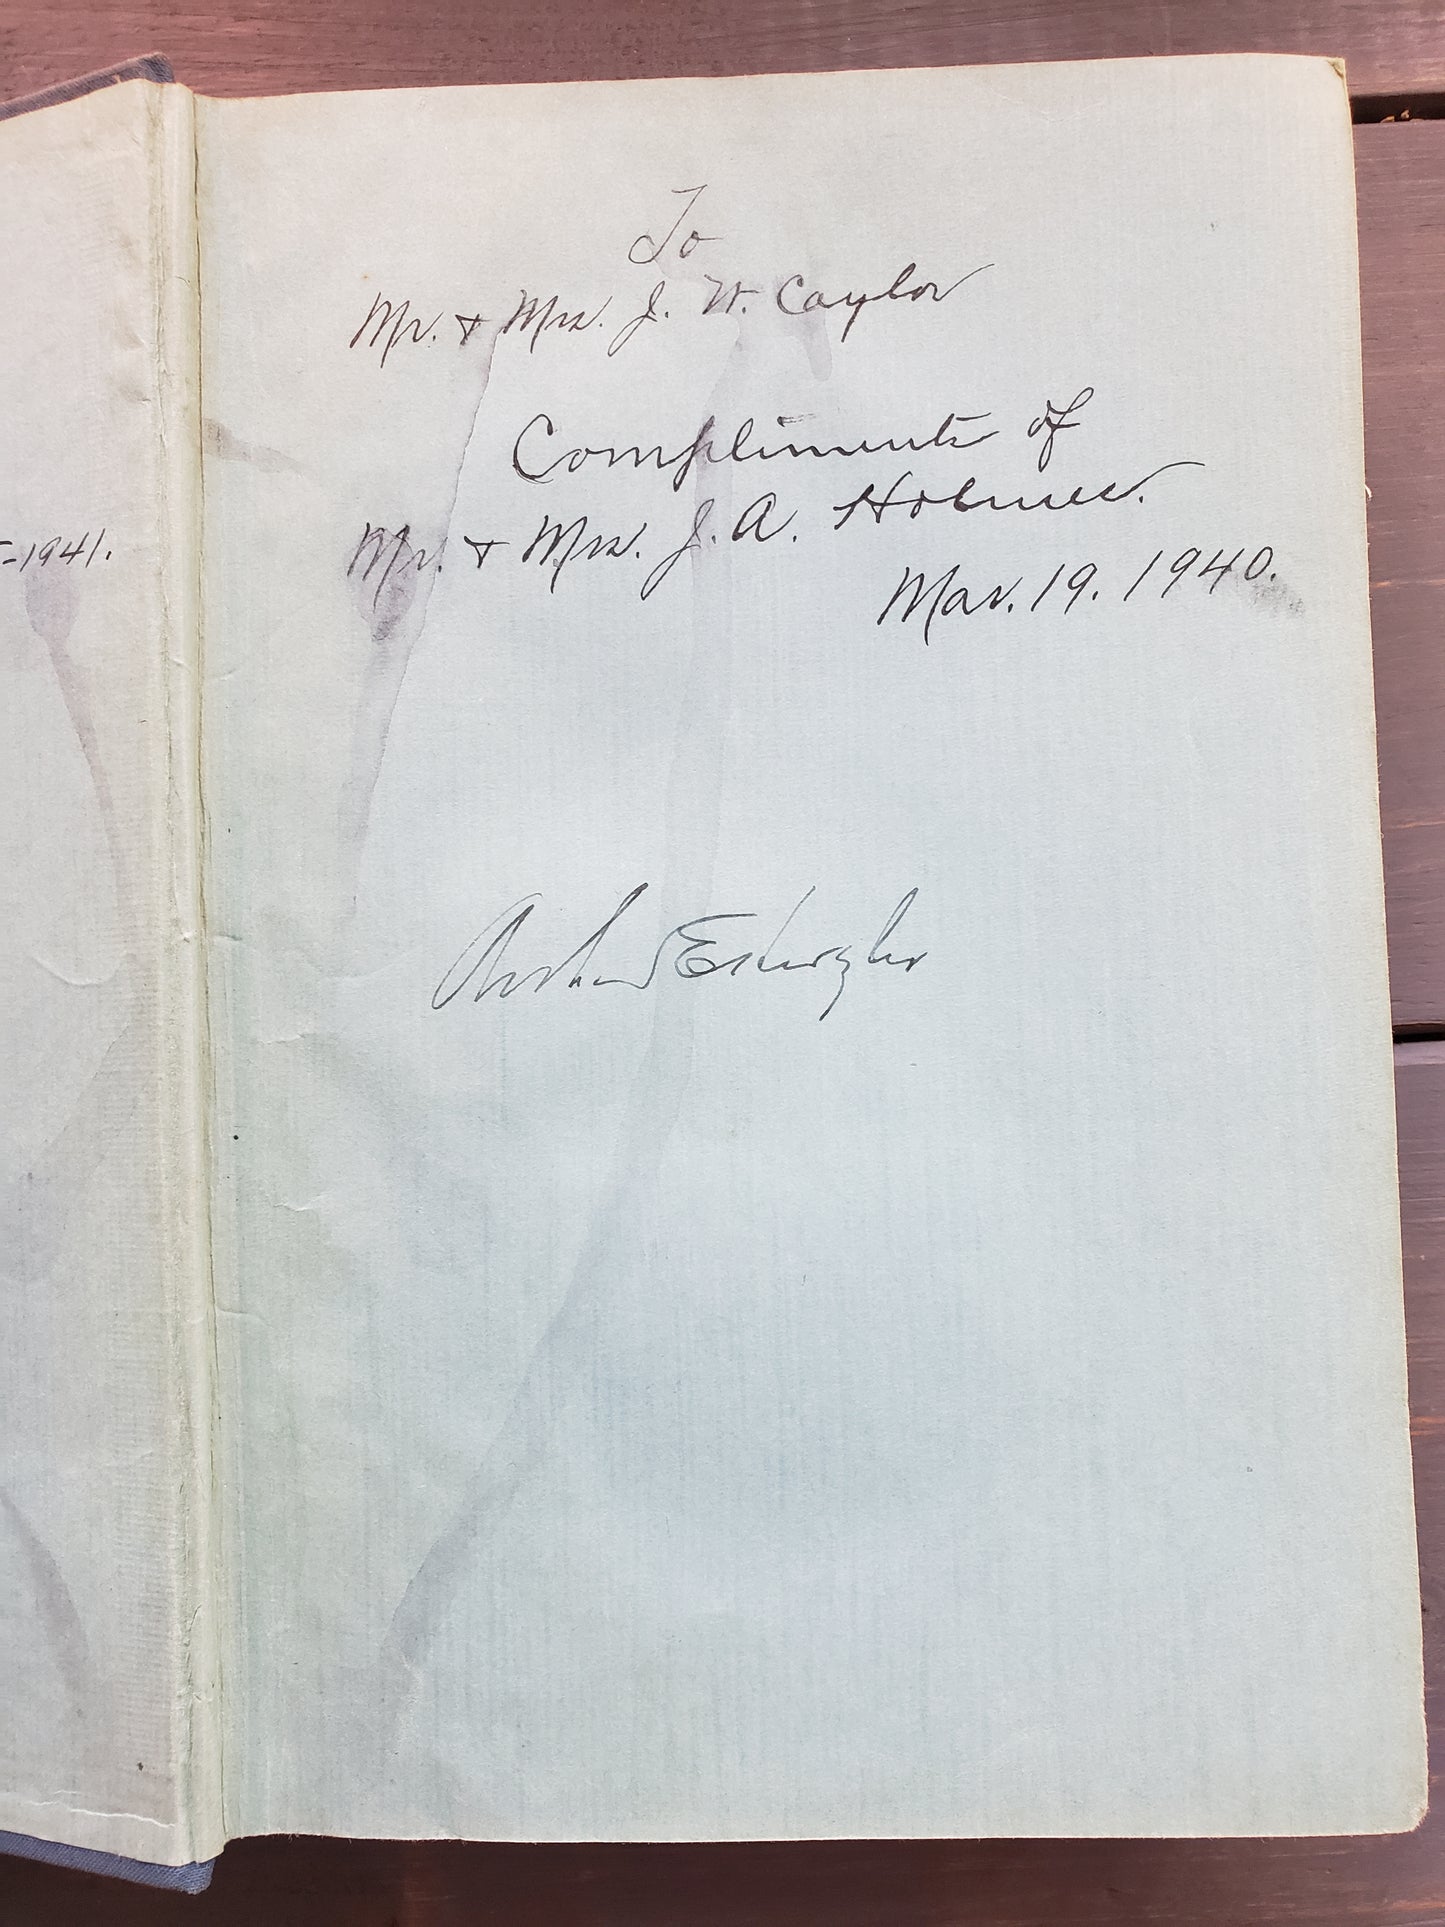 -1941.
To
Mr. & Mrs. J. W. Caylor
Compliments of
Mr. & Mrs. J. A. Holmes.
Mar. 19. 1940.